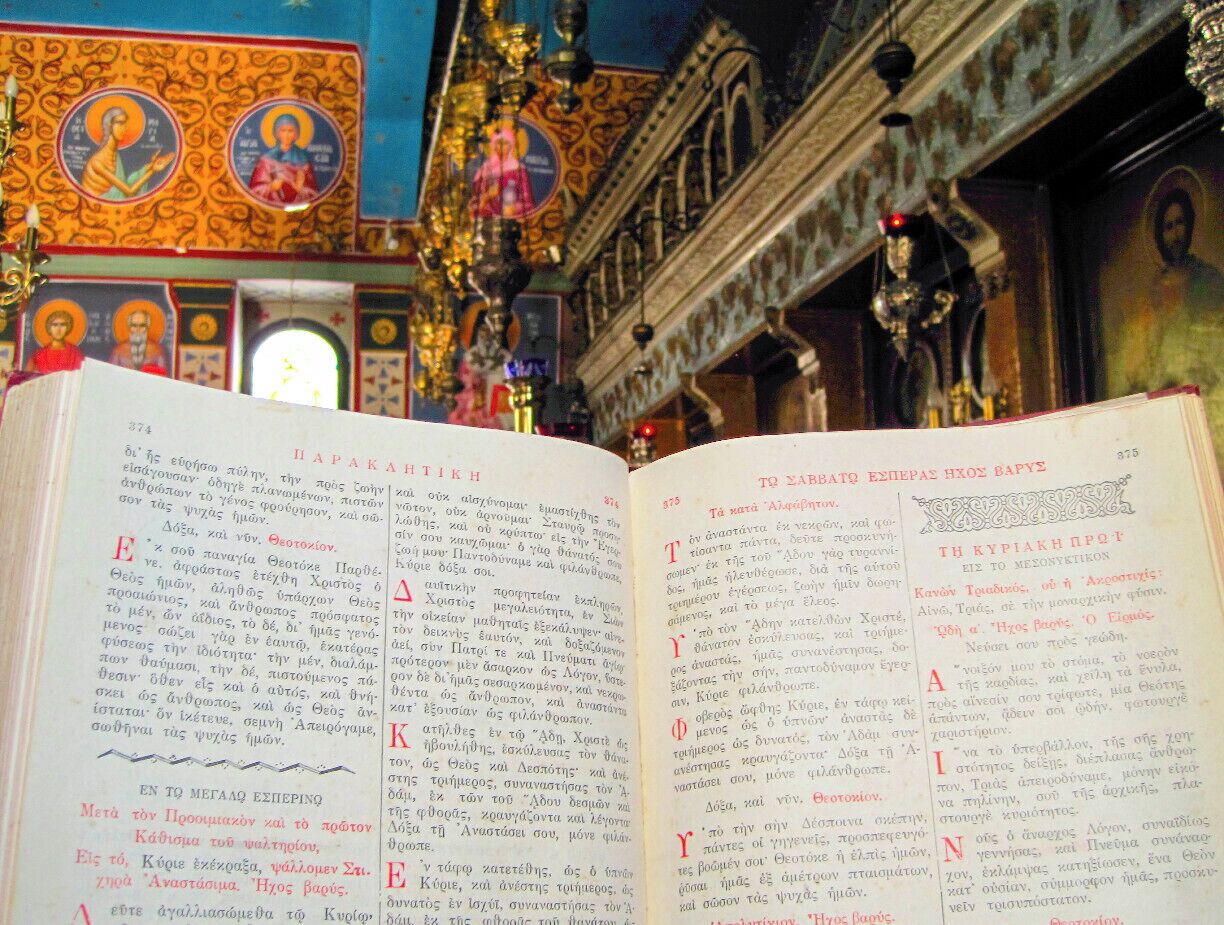 374
ΠΑΡΑΚΛΗΤΙΚΗ
δι' ἧς εὑρήσω πύλην, τὴν πρὸς ζωὴν
εἰσάγουσαν· ὁδηγὲ πλανωμένων, πιστῶν
ἀνθρώπων τὸ γένος φρούρησον, καὶ σῶ-
σον τὰς ψυχὰς ἡμῶν.
Δόξα, καὶ νῦν. Θεοτοκίον.
Ἐκ σοῦ παναγία Θεοτόκε Παρθέ-
νε, ἀφράστως ἐτέχθη Χριστὸς ὁ
Θεὸς ἡμῶν, ἀληθῶς ὑπάρχων Θεὸς
προαιώνιος, καὶ ἄνθρωπος πρόσφατος
τὸ μέν, ὢν ἀΐδιος, τὸ δέ, δι' ἡμᾶς γενό-
μενος· σώζει γὰρ ἐν ἑαυτῷ, ἑκατέρας
φύσεως τὴν ἰδιότητα· τὴν μέν, διαλάμ-
πων θαύμασι, τὴν δέ, πιστούμενος πά-
θεσιν· ὅθεν εἷς καὶ ὁ αὐτός, καὶ θνή-
σκει ὡς ἄνθρωπος, καὶ ὡς Θεὸς ἀν-
ίσταται· ὃν ἱκέτευε, σεμνὴ Ἀπειρόγαμε,
σωθῆναι τὰς ψυχὰς ἡμῶν.
ΕΝ ΤΩ ΜΕΓΑΛΩ ΕΣΠΕΡΙΝΩ
Μετὰ τὸν Προοιμιακὸν καὶ τὸ πρῶτον
Κάθισμα τοῦ ψαλτηρίου,
Εἰς τό, Κύριε ἐκέκραξα, ψάλλομεν Στι-
χηρὰ Ἀναστάσιμα. Ἦχος βαρύς.
Δεῦτε ἀγαλλιασώμεθα τῷ Κυρίῳ,
374
καὶ οὐκ αἰσχύνομαι· ἐμαστίχθης τὸν
νῶτον, οὐκ ἀρνοῦμαι· Σταυρῷ προση-
λώθης, καὶ οὐ κρύπτω· εἰς τὴν Ἔγερ-
σίν σου καυχῶμαι· ὁ γὰρ θάνατός σου
ζωή μου· Παντοδύναμε καὶ φιλάνθρωπε,
Κύριε δόξα σοι.
Δαυϊτικὴν προφητείαν ἐκπληρῶν,
Χριστὸς μεγαλειότητα, ἐν Σιὼν
τὴν οἰκείαν μαθηταῖς ἐξεκάλυψεν· αἰνε-
τὸν δεικνὺς ἑαυτόν, καὶ δοξαζόμενον
ἀεί, σὺν Πατρί τε καὶ Πνεύματι ἁγίῳ·
πρότερον μὲν ἄσαρκον ὡς Λόγον, ὕστε-
ρον δὲ δι' ἡμᾶς σεσαρκωμένον, καὶ νεκρω-
θέντα ὡς ἄνθρωπον, καὶ ἀναστάντα
κατ' ἐξουσίαν ὡς φιλάνθρωπον.
Κατῆλθες ἐν τῷ ᾍδῃ, Χριστὲ ὡς
ἠβουλήθης, ἐσκύλευσας τὸν θάνα-
τον, ὡς Θεὸς καὶ Δεσπότης· καὶ ἀνέ-
στης τριήμερος, συναναστήσας τὸν Ἀ-
δάμ, ἐκ τῶν τοῦ ᾍδου δεσμῶν καὶ
τῆς φθορᾶς, κραυγάζοντα καὶ λέγοντα
Δόξα τῇ Ἀναστάσει σου, μόνε φιλάν-
θρωπε.
Ἐν τάφῳ κατετέθης, ὡς ὁ ὑπνῶν
Κύριε, καὶ ἀνέστης τριήμερος, ὡς
δυνατὸς ἐν ἰσχύϊ, συναναστήσας τὸν Ἀ-
δάμ, ἐκ τῆς φθορᾶς τοῦ θανάτου ὡς
375
ΤΩ ΣΑΒΒΑΤΩ ΕΣΠΕΡΑΣ ΗΧΟΣ ΒΑΡΥΣ
375
Τὰ κατὰ Ἀλφάβητον.
Τὸν ἀναστάντα ἐκ νεκρῶν, καὶ φω-
τίσαντα πάντα, δεῦτε προσκυνή-
σωμεν· ἐκ τῆς τοῦ ᾍδου γὰρ τυραννί-
δος, ἡμᾶς ἠλευθέρωσε, διὰ τῆς αὐτοῦ
τριημέρου ἐγέρσεως, ζωὴν ἡμῖν δωρη-
σάμενος, καὶ τὸ μέγα ἔλεος.
Ὑπὸ τὸν ᾍδην κατελθὼν Χριστέ,
θάνατον ἐσκύλευσας, καὶ τριήμε-
ρος ἀναστάς, ἡμᾶς συνανέστησας, δο-
ξάζοντας τὴν σήν, παντοδύναμον ἔγερ-
σιν, Κύριε φιλάνθρωπε.
Φοβερὸς ὤφθης Κύριε, ἐν τάφῳ κεί-
μενος ὡς ὁ ὑπνῶν· ἀναστὰς δὲ
τριήμερος ὡς δυνατός, τὸν Ἀδὰμ συν-
ανέστησας κραυγάζοντα· Δόξα τῇ Ἀ-
ναστάσει σου, μόνε φιλάνθρωπε.
Δόξα, καὶ νῦν. Θεοτοκίον.
Ὑπὸ τὴν σὴν Δέσποινα σκέπην,
πάντες οἱ γηγενεῖς, προσπεφευγό-
τες βοῶμέν σοι· Θεοτόκε ἡ ἐλπὶς ἡμῶν,
ῥῦσαι ἡμᾶς ἐξ ἀμέτρων πταισμάτων,
καὶ σῶσον τὰς ψυχὰς ἡμῶν.
Ἀπολυτίκιον. Ἦχος βαρύς.
ΤΗ ΚΥΡΙΑΚΗ ΠΡΩΪ
ΕΙΣ ΤΟ ΜΕΣΟΝΥΚΤΙΚΟΝ
Κανὼν Τριαδικός, οὗ ἡ Ἀκροστιχίς:
Αἰνῶ, Τριάς, σὲ τὴν μοναρχικὴν φύσιν.
ᾨδὴ α΄. Ἦχος βαρύς. Ὁ Εἱρμός.
Νεύσει σου πρὸς γεώδη.
Ἄνοιξόν μου τὸ στόμα, τὸ νοερὸν
τῆς καρδίας, καὶ χείλη τὰ ἔνυλα,
πρὸς αἴνεσίν σου τρίφωτε, μία Θεότης
ἁπάντων, ᾄδειν σοι ᾠδήν, φωτουργὲ
χαριστήριον.
Ἵνα τὸ ὑπερβάλλον, τῆς σῆς χρη-
στότητος δείξῃς, διέπλασας ἄνθρω-
πον, Τριὰς ἀπειροδύναμε, μόνην εἰκό-
να πηλίνην, σοῦ τῆς ἀρχικῆς, πλα-
στουργὲ κυριότητος.
Νοῦς ὁ ἄναρχος Λόγον, συναϊδίως
γεννήσας, καὶ Πνεῦμα συνάναρ-
χον, ἐκλάμψας κατηξίωσεν, ἕνα Θεὸν
κατ' οὐσίαν, σύμμορφον ἡμᾶς, προσκυ-
νεῖν τρισυπόστατον.
Θεοτοκίον.